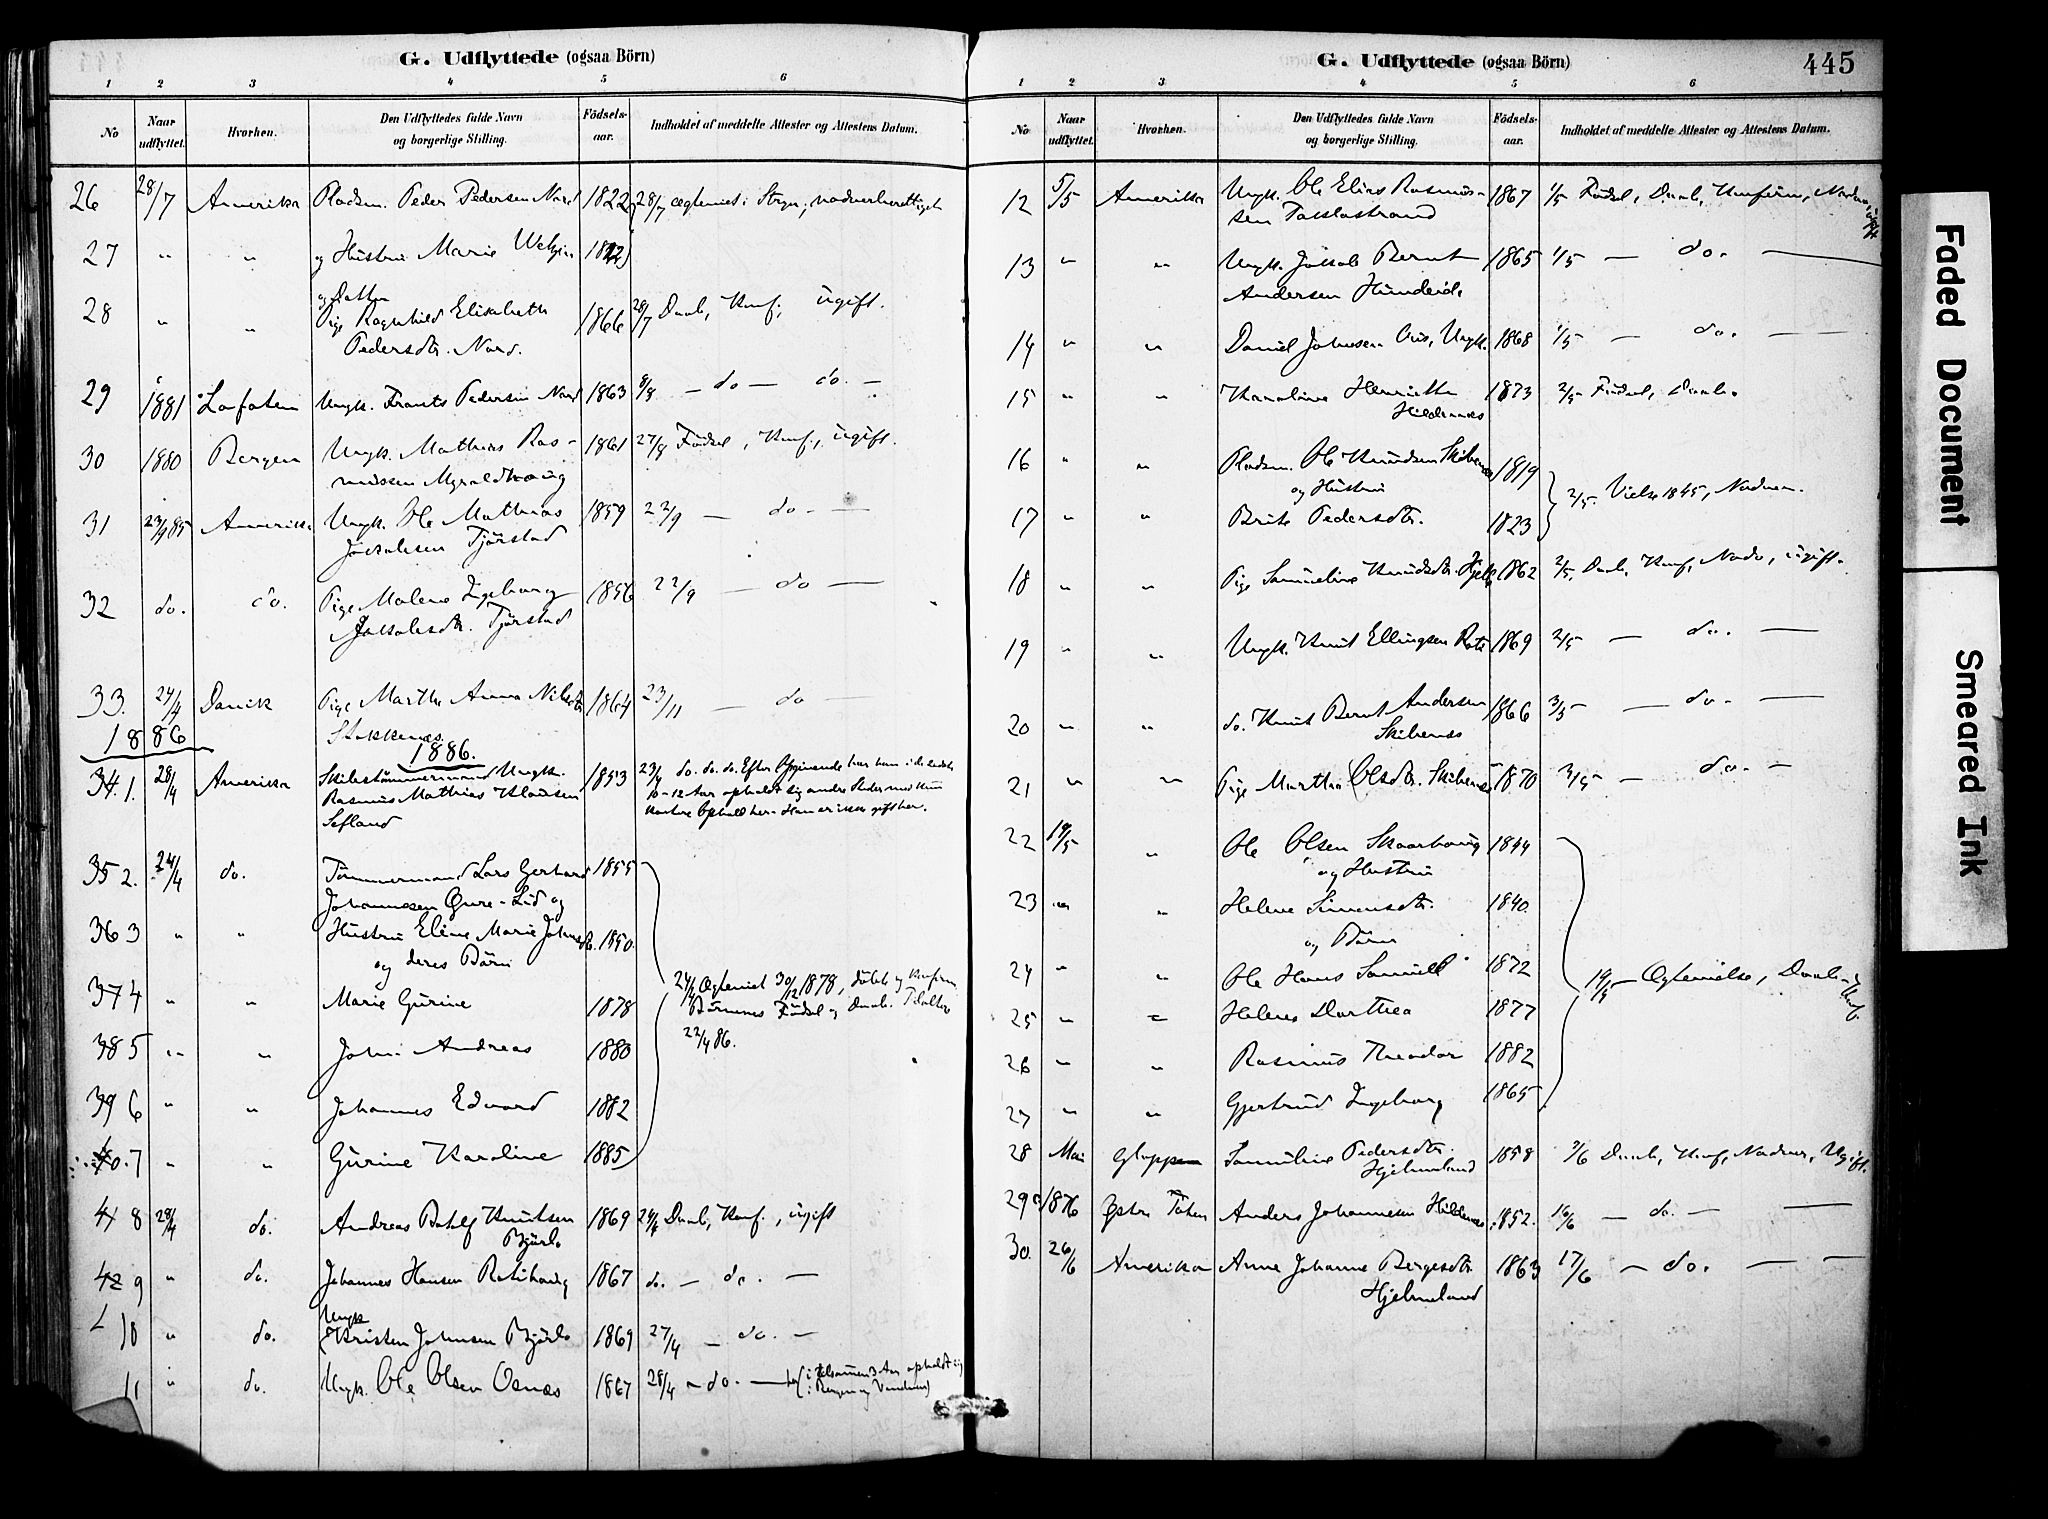 G. Udflyttede (ogsaa Börn)
1 2 3 4 5 6
No Naar udflyttet. Hvorhen. Den Udflyttedes fulde Navn og borgerlige Stilling. Födsels-aar. Indholdet af meddelte Attester og Attestens Datum.
26 28/7 Amerika Pladsm. Peder Pedersen Nord 1822 28/7 ægteviet i Stryn, nadverberettiget
27 " " og Hustru Marie
28 " " og Datter
Pige Ragnhild Elisabeth 1866 28/7 Daab, Konf., ugift.
Pedersdtr. Nord.
29 1881 Lofoten Ungk. Frants Pedersen Nord 1863 8/8 — do — do. —
30 1880 Bergen Ungk. Mathias Ras- 1861 27/8 Födsel, Konf., ugift.
mussen Myraldhoug
31 23/9 85 Amerika Ungk. Ole Mathias 1859 22/9 — do. —
Jakobsen Tjörstad
32 do. do. Pige Malene Ingeborg 1856 22/9 — do —
Jakobsdtr. Tjörstad
33. 24/4 Davik Pige Marthe Anna 1864 23/11 — do —
Stokkenæs.
1886
1886.
34. 1. 28/4 Amerika Skibstömmermand Ungk. 1853 23/4 do. do. do. Efter Opgivende har han i de sidste
Rasmus Mathias Klausen 10-12 Aar opholdt sig andre Steder med kun
Sefland kortere Ophold her. Han er ikke gift her.
35 2. 24/4 do. Tömmermand Lars Gerhard 1855
Johannesen Övre-Lid og
36 3 " " Hustru Eline Marie 1850.
og deres Börn
37 4 " " Marie Gurine 1878 24/4 Ægteviet 30/12 1878, döbt og konfirm.
Börnenes Födsel og Daab.
22/4 86.
38 5 " " John Andreas 1880
39 6 " " Johannes Edvard 1882
40. 7 " " Gurine Karoline 1885
41 8 28/4 do. Andreas Knutsen 1869 24/4 Daab, Konf., ugift
Björlo
42 9 " do. Johannes Hansen Rotihaug 1867 do. — do. —
10 " do. Ungk. Kristen Johnsen Björlo 1869 27/4 — do. —
11 " do. Ungk. Ole Olsen Osnæs 1867 28/4 — do. —
G. Udflyttede (ogsaa Börn) 445
1 2 3 4 5 6
No Naar udflyttet. Hvorhen. Den Udflyttedes fulde Navn og borgerlige Stilling. Födsels-aar. Indholdet af meddelte Attester og Attestens Datum.
12 5/5 Amerika Ungk. Ole Elias Rasmus- 1867 1/5 Födsel, Daab, Konfirm, Nadver, ugift
sen Taklostrand
13 " " Ungk. Jakob Bernt 1865 1/5 — do. —
Andersen Hundeide
14 " " Daniel Johnsen Aus, Ungk. 1868 1/5 — do. —
15 " " Karoline Henriette 1873 2/5 Födsel, Daab.
Hildenæs
16 " " Pladsm. Ole Knudsen Skibenæs 1819
og Hustru 2/5 Vielse 1845, Nadver.
17 " " Brite Pedersdtr. 1823
18 " " Pige Samueline Knudsdtr. 1862 2/5 Daab, Konf, Nadv, ugift.
19 " " Ungk. Knut Ellingsen 1869 2/5 — do. —
20 " " do. Knut Bernt Andersen 1866 3/5 — do. —
Skibenæs
21 " " Pige Marthe Olsdtr. Skibenæs 1870 3/5 — do. —
22 19/5 " Ole Olsen Skaarhaug 1844
og Hustru
23 " " Helene Simensdtr. 1840.
og Börn
24 " " Ole Hans Samuel 1872 19/5 — Ægtevielse, Daab, Konf.
25 " " Helene Dorthea 1877
26 " " Rasmus Theodor 1882
27 " " Gjertrud Ingeborg 1865
28 Mai Gloppen Samueline Pedersdtr. 1858 2/6 Daab, Konf, Nadver, Ugift.
Hjelmeland
29 1876 Østre Toten Anders Johannesen Hildenæs 1852. 16/6 — do. —
30. 26/6 Amerika Anne Johanne Børgesdtr. 1863 17/6 — do. —
Hjelmeland
Faded Document
Smeared Ink